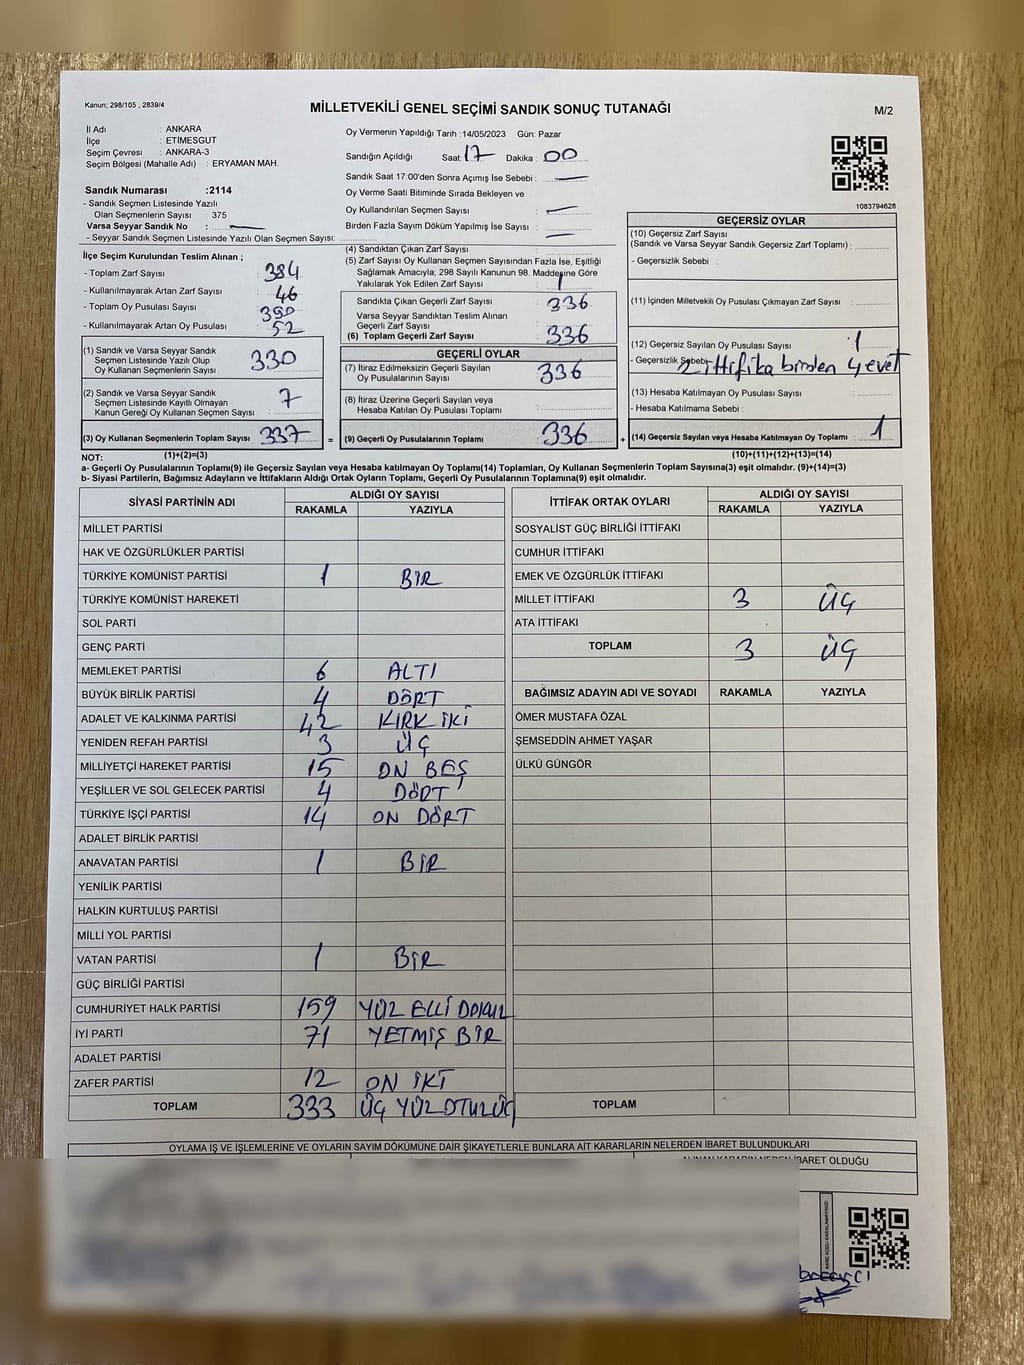 Kanun; 298/105 , 2839/4
MİLLETVEKİLİ GENEL SEÇİMİ SANDIK SONUÇ TUTANAĞI
M/2
İl Adı : ANKARA
İlçe : ETİMESGUT
Seçim Çevresi : ANKARA-3
Seçim Bölgesi (Mahalle Adı) : ERYAMAN MAH.
Sandık Numarası :2114
- Sandık Seçmen Listesinde Yazılı
Olan Seçmenlerin Sayısı : 375
Varsa Seyyar Sandık No :
- Seyyar Sandık Seçmen Listesinde Yazılı Olan Seçmen Sayısı:
Oy Vermenin Yapıldığı Tarih :14/05/2023 Gün: Pazar
Sandığın Açıldığı Saat: 17 Dakika : 00
Sandık Saat 17:00'den Sonra Açımış İse Sebebi :
Oy Verme Saati Bitiminde Sırada Bekleyen ve
Oy Kullandırılan Seçmen Sayısı :
Birden Fazla Sayım Döküm Yapılmış İse Sayısı :
1083794628
İlçe Seçim Kurulundan Teslim Alınan ;
- Toplam Zarf Sayısı : 384
- Kullanılmayarak Artan Zarf Sayısı : 46
- Toplam Oy Pusulası Sayısı :
- Kullanılmayarak Artan Oy Pusulası : 52
(1) Sandık ve Varsa Seyyar Sandık
Seçmen Listesinde Yazılı Olup
Oy Kullanan Seçmenlerin Sayısı : 330
(2) Sandık ve Varsa Seyyar Sandık
Seçmen Listesinde Kayıtlı Olmayan
Kanun Gereği Oy Kullanan Seçmen Sayısı : 7
(3) Oy Kullanan Seçmenlerin Toplam Sayısı : 337
(4) Sandıktan Çıkan Zarf Sayısı :
(5) Zarf Sayısı Oy Kullanan Seçmen Sayısından Fazla İse, Eşitliği
Sağlamak Amacıyla, 298 Sayılı Kanunun 98. Maddesine Göre
Yakılarak Yok Edilen Zarf Sayısı : 1
Sandıkta Çıkan Geçerli Zarf Sayısı : 336
Varsa Seyyar Sandıktan Teslim Alınan
Geçerli Zarf Sayısı :
(6) Toplam Geçerli Zarf Sayısı : 336
GEÇERLİ OYLAR
(7) İtiraz Edilmeksizin Geçerli Sayılan
Oy Pusulalarının Sayısı : 336
(8) İtiraz Üzerine Geçerli Sayılan veya
Hesaba Katılan Oy Pusulası Toplamı :
= (9) Geçerli Oy Pusulalarının Toplamı : 336
GEÇERSİZ OYLAR
(10) Geçersiz Zarf Sayısı
(Sandık ve Varsa Seyyar Sandık Geçersiz Zarf Toplamı) :
- Geçersizlik Sebebi :
(11) İçinden Milletvekili Oy Pusulası Çıkmayan Zarf Sayısı :
(12) Geçersiz Sayılan Oy Pusulası Sayısı : 1
- Geçersizlik Sebebi: 2 ittifika birden 4 evet
(13) Hesaba Katılmayan Oy Pusulası Sayısı :
- Hesaba Katılmama Sebebi :
+ (14) Geçersiz Sayılan veya Hesaba Katılmayan Oy Toplamı : 1
NOT: (1)+(2)=(3) (10)+(11)+(12)+(13)=(14)
a- Geçerli Oy Pusulalarının Toplamı(9) ile Geçersiz Sayılan veya Hesaba katılmayan Oy Toplamı(14) Toplamları, Oy Kullanan Seçmenlerin Toplam Sayısına(3) eşit olmalıdır. (9)+(14)=(3)
b- Siyasi Partilerin, Bağımsız Adayların ve İttifakların Aldığı Ortak Oyların Toplamı, Geçerli Oy Pusulalarının Toplamına(9) eşit olmalıdır.
SİYASİ PARTİNİN ADI ALDIĞI OY SAYISI
RAKAMLA YAZIYLA
MİLLET PARTİSİ
HAK VE ÖZGÜRLÜKLER PARTİSİ
TÜRKİYE KOMÜNİST PARTİSİ 1 BİR
TÜRKİYE KOMÜNİST HAREKETİ
SOL PARTİ
GENÇ PARTİ
MEMLEKET PARTİSİ 6 ALTI
BÜYÜK BİRLİK PARTİSİ 4 DÖRT
ADALET VE KALKINMA PARTİSİ 42 KIRK İKİ
YENİDEN REFAH PARTİSİ 3 ÜÇ
MİLLİYETÇİ HAREKET PARTİSİ 15 ON BEŞ
YEŞİLLER VE SOL GELECEK PARTİSİ 4 DÖRT
TÜRKİYE İŞÇİ PARTİSİ 14 ON DÖRT
ADALET BİRLİK PARTİSİ
ANAVATAN PARTİSİ 1 BİR
YENİLİK PARTİSİ
HALKIN KURTULUŞ PARTİSİ
MİLLİ YOL PARTİSİ
VATAN PARTİSİ 1 BİR
GÜÇ BİRLİĞİ PARTİSİ
CUMHURİYET HALK PARTİSİ 159 YÜZ ELLİ DOKUZ
İYİ PARTİ 71 YETMİŞ BİR
ADALET PARTİSİ
ZAFER PARTİSİ 12 ON İKİ
TOPLAM 333 ÜÇ YÜZ OTUZ ÜÇ
İTTİFAK ORTAK OYLARI ALDIĞI OY SAYISI
RAKAMLA YAZIYLA
SOSYALİST GÜÇ BİRLİĞİ İTTİFAKI
CUMHUR İTTİFAKI
EMEK VE ÖZGÜRLÜK İTTİFAKI
MİLLET İTTİFAKI 3 ÜÇ
ATA İTTİFAKI
TOPLAM 3 ÜÇ
BAĞIMSIZ ADAYIN ADI VE SOYADI RAKAMLA YAZIYLA
ÖMER MUSTAFA ÖZAL
ŞEMSEDDİN AHMET YAŞAR
ÜLKÜ GÜNGÖR
TOPLAM
OYLAMA İŞ VE İŞLEMLERİNE VE OYLARIN SAYIM DÖKÜMÜNE DAİR ŞİKAYETLERLE BUNLARA AİT KARARLARIN NELERDEN İBARET BULUNDUKLARI
ALINAN KARARIN NEDEN İBARET OLDUĞU